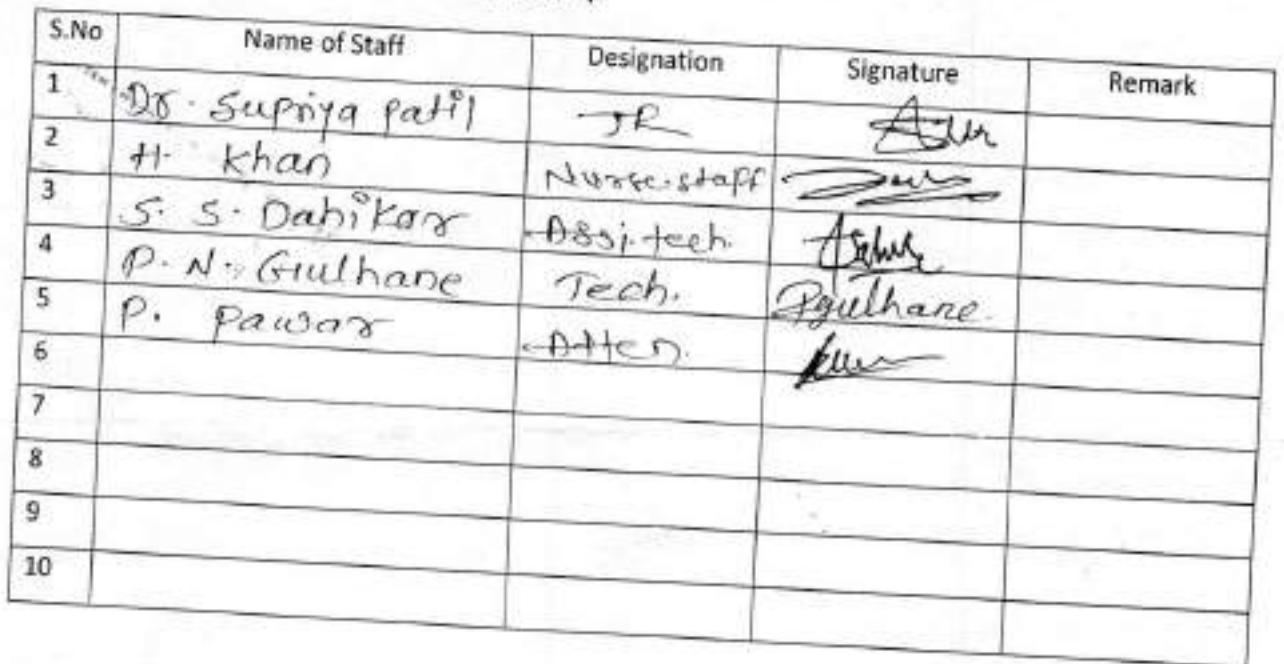 S.No Name of Staff Designation Signature Remark
1 Dr. Supriya Patil JR
2 H. Khan Nurse.staff
3 S. S. Dahikar Assi.tech.
4 P. N. Gulhane Tech. Pgulhane.
5 P. Pawar Atten.
6
7
8
9
10